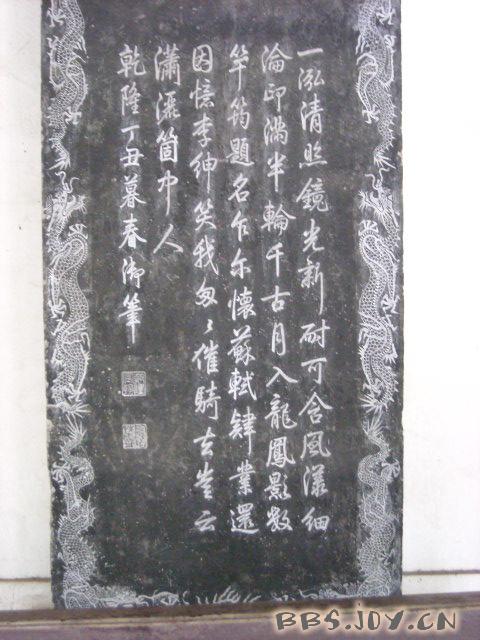 一泓清照鏡光新耐可含風漾細
淪印滿半輪千古月入龍鳳影數
竿筠題名乍尔懷蘇軾肄業還
因憶李紳笑我匆〻催騎去豈云
瀟灑箇中人
乾隆丁丑暮春御筆
BBS.JOY.CN